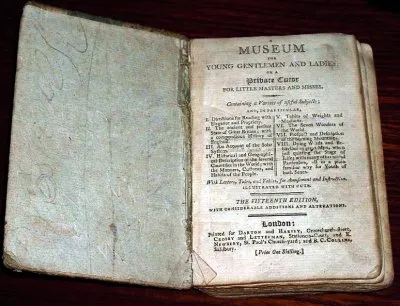 A
MUSEUM
FOR
YOUNG GENTLEMEN AND LADIES;
OR A
Private Tutor
FOR LITTLE MASTERS AND MISSES.
Containing a Variety of useful Subjects;
AND, IN PARTICULAR,
I. Directions for Reading with
Elegance and Propriety.
II. The ancient and present
State of Great Britain; with
a compendious History of
England.
III. An Account of the Solar
System.
IV. Historical and Geographical
Description of the several
Countries in the World; with
the Manners, Customs, and
Habits of the People.
V. Tables of Weights and
Measures.
VI. The Seven Wonders of
the World.
VII. Prospect and Description
of the burning Mountains.
VIII. Dying Words and
of great Men, when just
quitting the Stage of
Life; with many other useful
Particulars, all in a plain
familiar way for Youth of
both Sexes.
With Letters, Tales, and Fables, for Amusement and Instruction.
ILLUSTRATED WITH CUTS.
THE FIFTEENTH EDITION,
WITH CONSIDERABLE ADDITIONS AND ALTERATIONS.
London:
Printed for DARTON and HARVEY, Gracechurch-Street,
CROSBY and LETTERMAN, Stationers-Court, and E.
NEWBERY, St. Paul's Church-yard; and B. C. COLLINS,
Salisbury.
[Price One Shilling.]